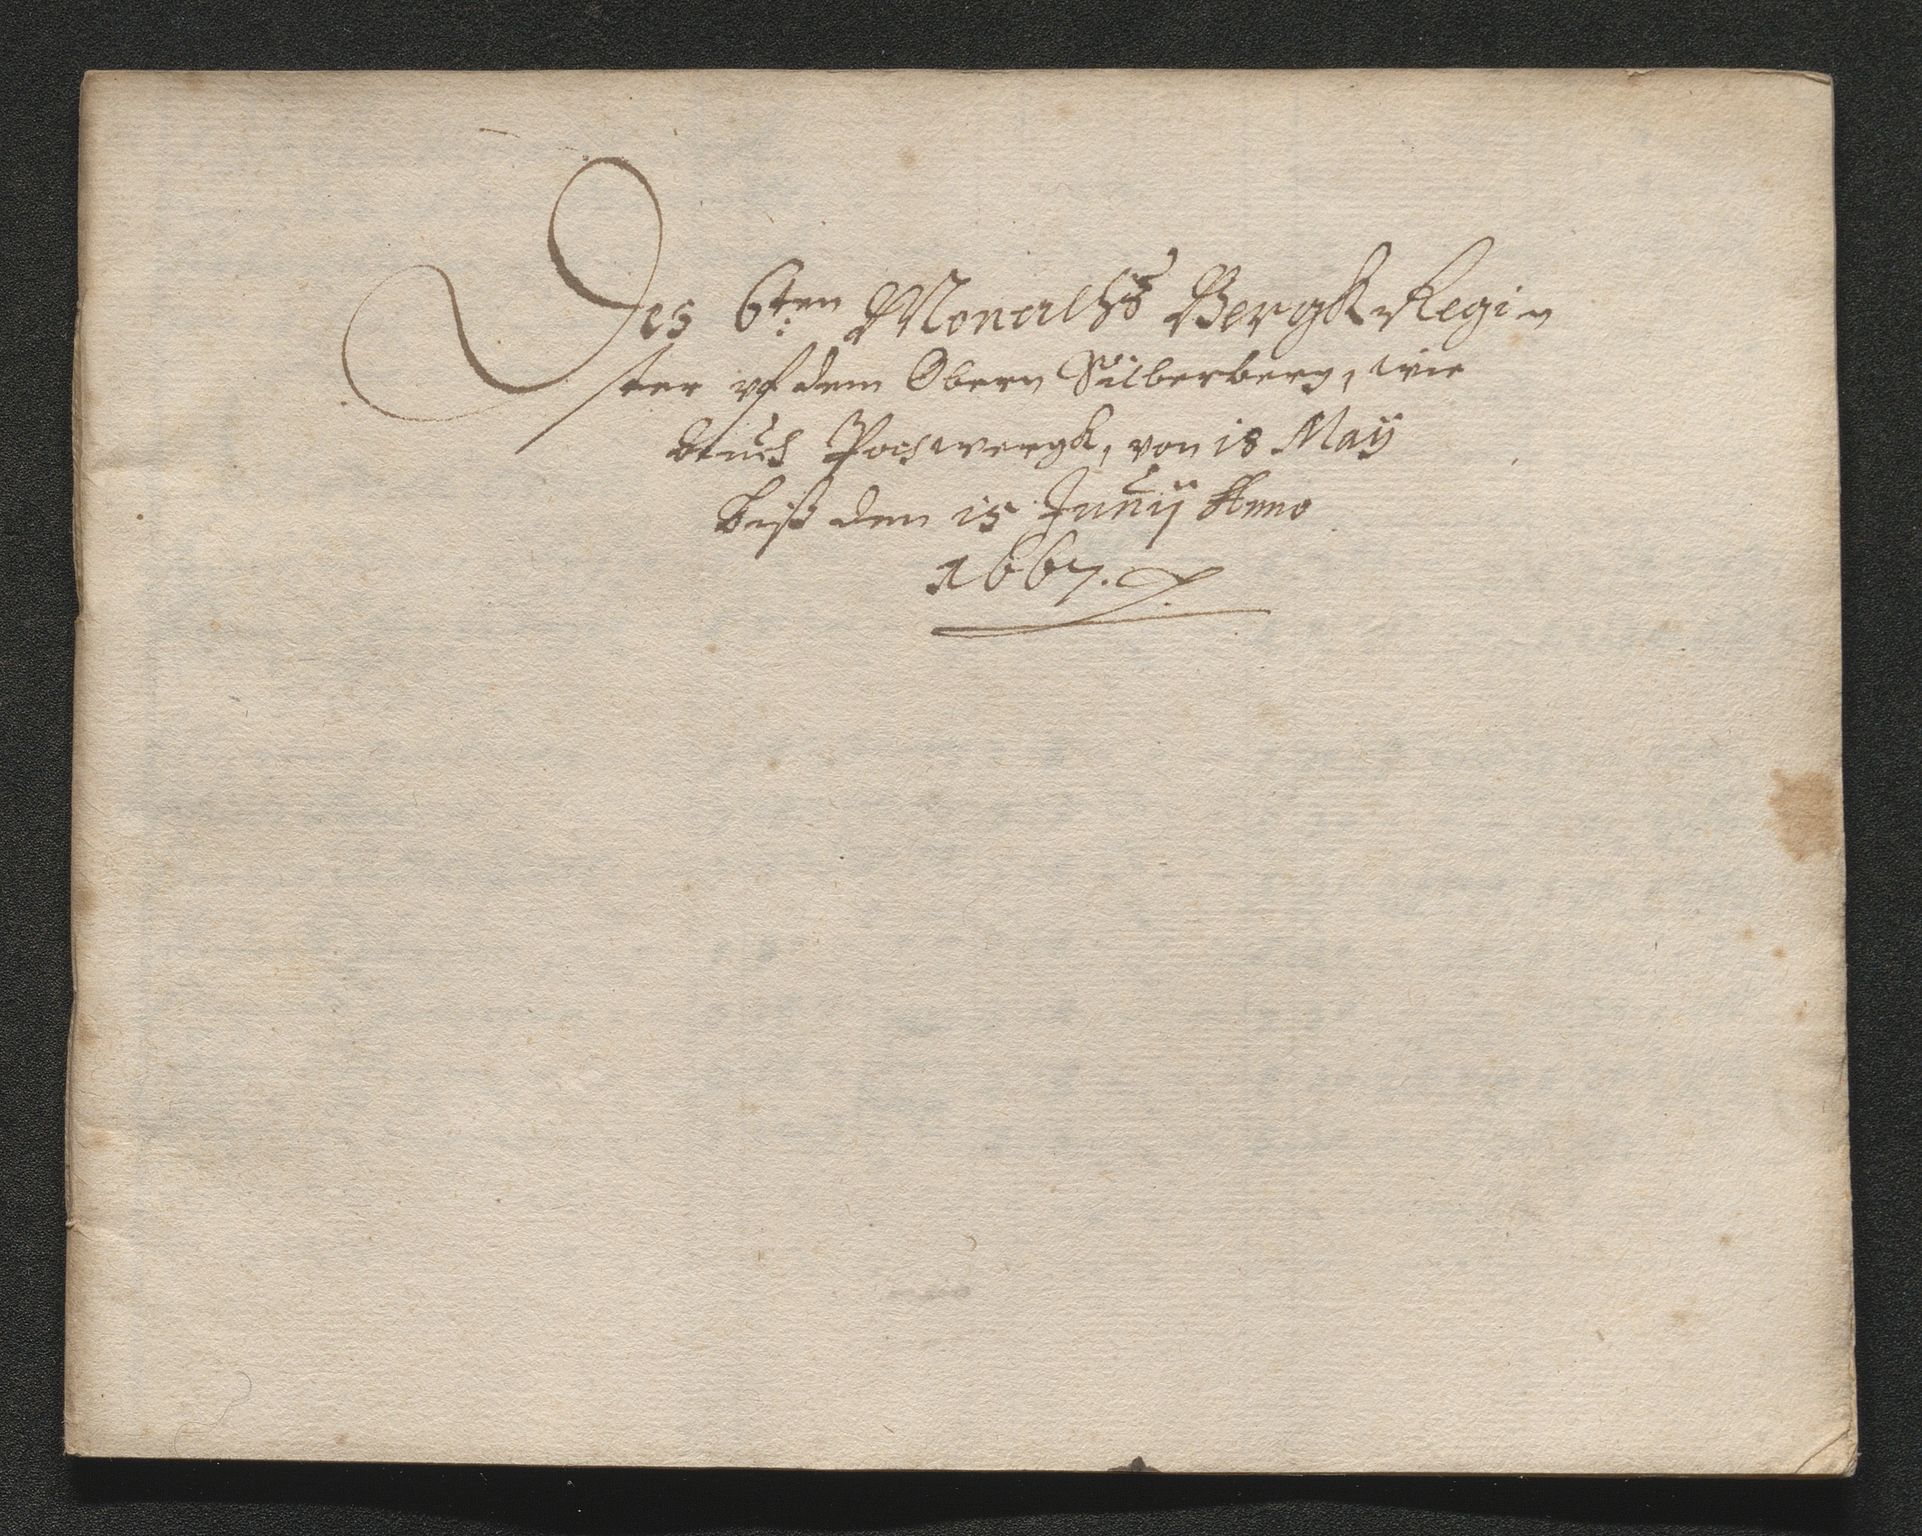 Des 6ten Monaths Bergk Regi-
ster vf dem Obern Silberberg, wie
auch Pochwergk, von 18 Maÿ
biß den 15 Junÿ Anno
1667.